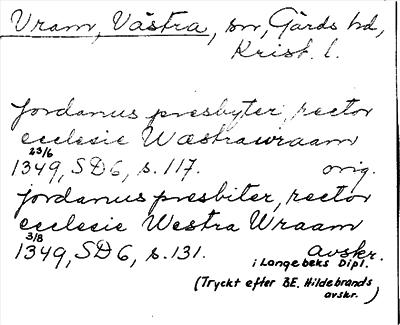 Vram, Västra, sn, Gärds hd,
Krist. l.
Jordanus presbyter, rector
ecclesie Wæstrawraam
23/6
1349, SD 6, s. 117. orig.
Jordanus presbiter, rector
ecclesie Westra Wraam
3/8
1349, SD 6, s. 131. avskr.
i Langebeks Dipl.
(Tryckt efter BE. Hildebrands
avskr.)